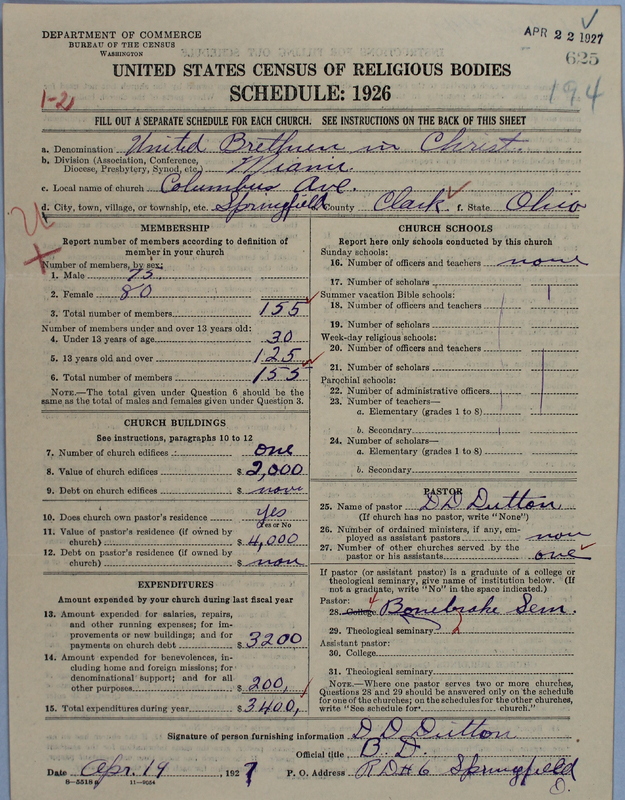 DEPARTMENT OF COMMERCE
BUREAU OF THE CENSUS
WASHINGTON
APR 22 1927
625
194
UNITED STATES CENSUS OF RELIGIOUS BODIES
SCHEDULE: 1926
1-2
FILL OUT A SEPARATE SCHEDULE FOR EACH CHURCH. SEE INSTRUCTIONS ON THE BACK OF THIS SHEET
a. Denomination United Brethren in Christ.
b. Division (Association, Conference, Diocese, Presbytery, Synod, etc.) Miami.
c. Local name of church Columbus Ave.
d. City, town, village, or township, etc. Springfield County Clark f. State Ohio
MEMBERSHIP
Report number of members according to definition of
member in your church
Number of members, by sex:
1. Male 75.
2. Female 80
3. Total number of members 155
Number of members under and over 13 years old:
4. Under 13 years of age 30
5. 13 years old and over 125
6. Total number of members 155
NOTE.—The total given under Question 6 should be
same as the total of males and females given under Question 3.
CHURCH BUILDINGS
See instructions, paragraphs 10 to 12
7. Number of church edifices one
8. Value of church edifices $ 2,000
9. Debt on church edifices $ none
10. Does church own pastor's residence yes
Yes or No
11. Value of pastor's residence (if owned by
church) $ 4,000
12. Debt on pastor's residence (if owned by
church) $ non
EXPENDITURES
Amount expended by your church during last fiscal year
13. Amount expended for salaries, repairs,
and other running expenses; for im-
provements or new buildings; and for
payments on church debt $ 3200
14. Amount expended for benevolences, in-
cluding home and foreign missions; for
denominational support; and for all
other purposes $ 200,
15. Total expenditures during year $ 3400,
CHURCH SCHOOLS
Report here only schools conducted by this church
Sunday schools:
16. Number of officers and teachers none
17. Number of scholars
Summer vacation Bible schools:
18. Number of officers and teachers
19. Number of scholars
Week-day religious schools:
20. Number of officers and teachers
21. Number of scholars
Parochial schools:
22. Number of administrative officers
23. Number of teachers—
a. Elementary (grades 1 to 8)
b. Secondary
24. Number of scholars—
a. Elementary (grades 1 to 8)
b. Secondary
PASTOR
25. Name of pastor D D Dutton
(If church has no pastor, write "None")
26. Number of ordained ministers, if any, em-
ployed as assistant pastors non
27. Number of other churches served by the
pastor or his assistants one
If pastor (or assistant pastor) is a graduate of a college or
theological seminary, give name of institution below. (If
not a graduate, write "No" in the space indicated.)
Pastor:
28. College Bonebrake Sem.
29. Theological seminary
Assistant pastor:
30. College
31. Theological seminary
NOTE.—Where one pastor serves two or more churches,
Questions 28 and 29 should be answered only on the schedule
for one of the churches; on the schedules for the other churches,
write "See schedule for church."
Signature of person furnishing information D D Dutton
Official title B. D.
Date Apr. 19, 1927 P. O. Address R D # 6 Springfield
O.
8—5518 11—9054